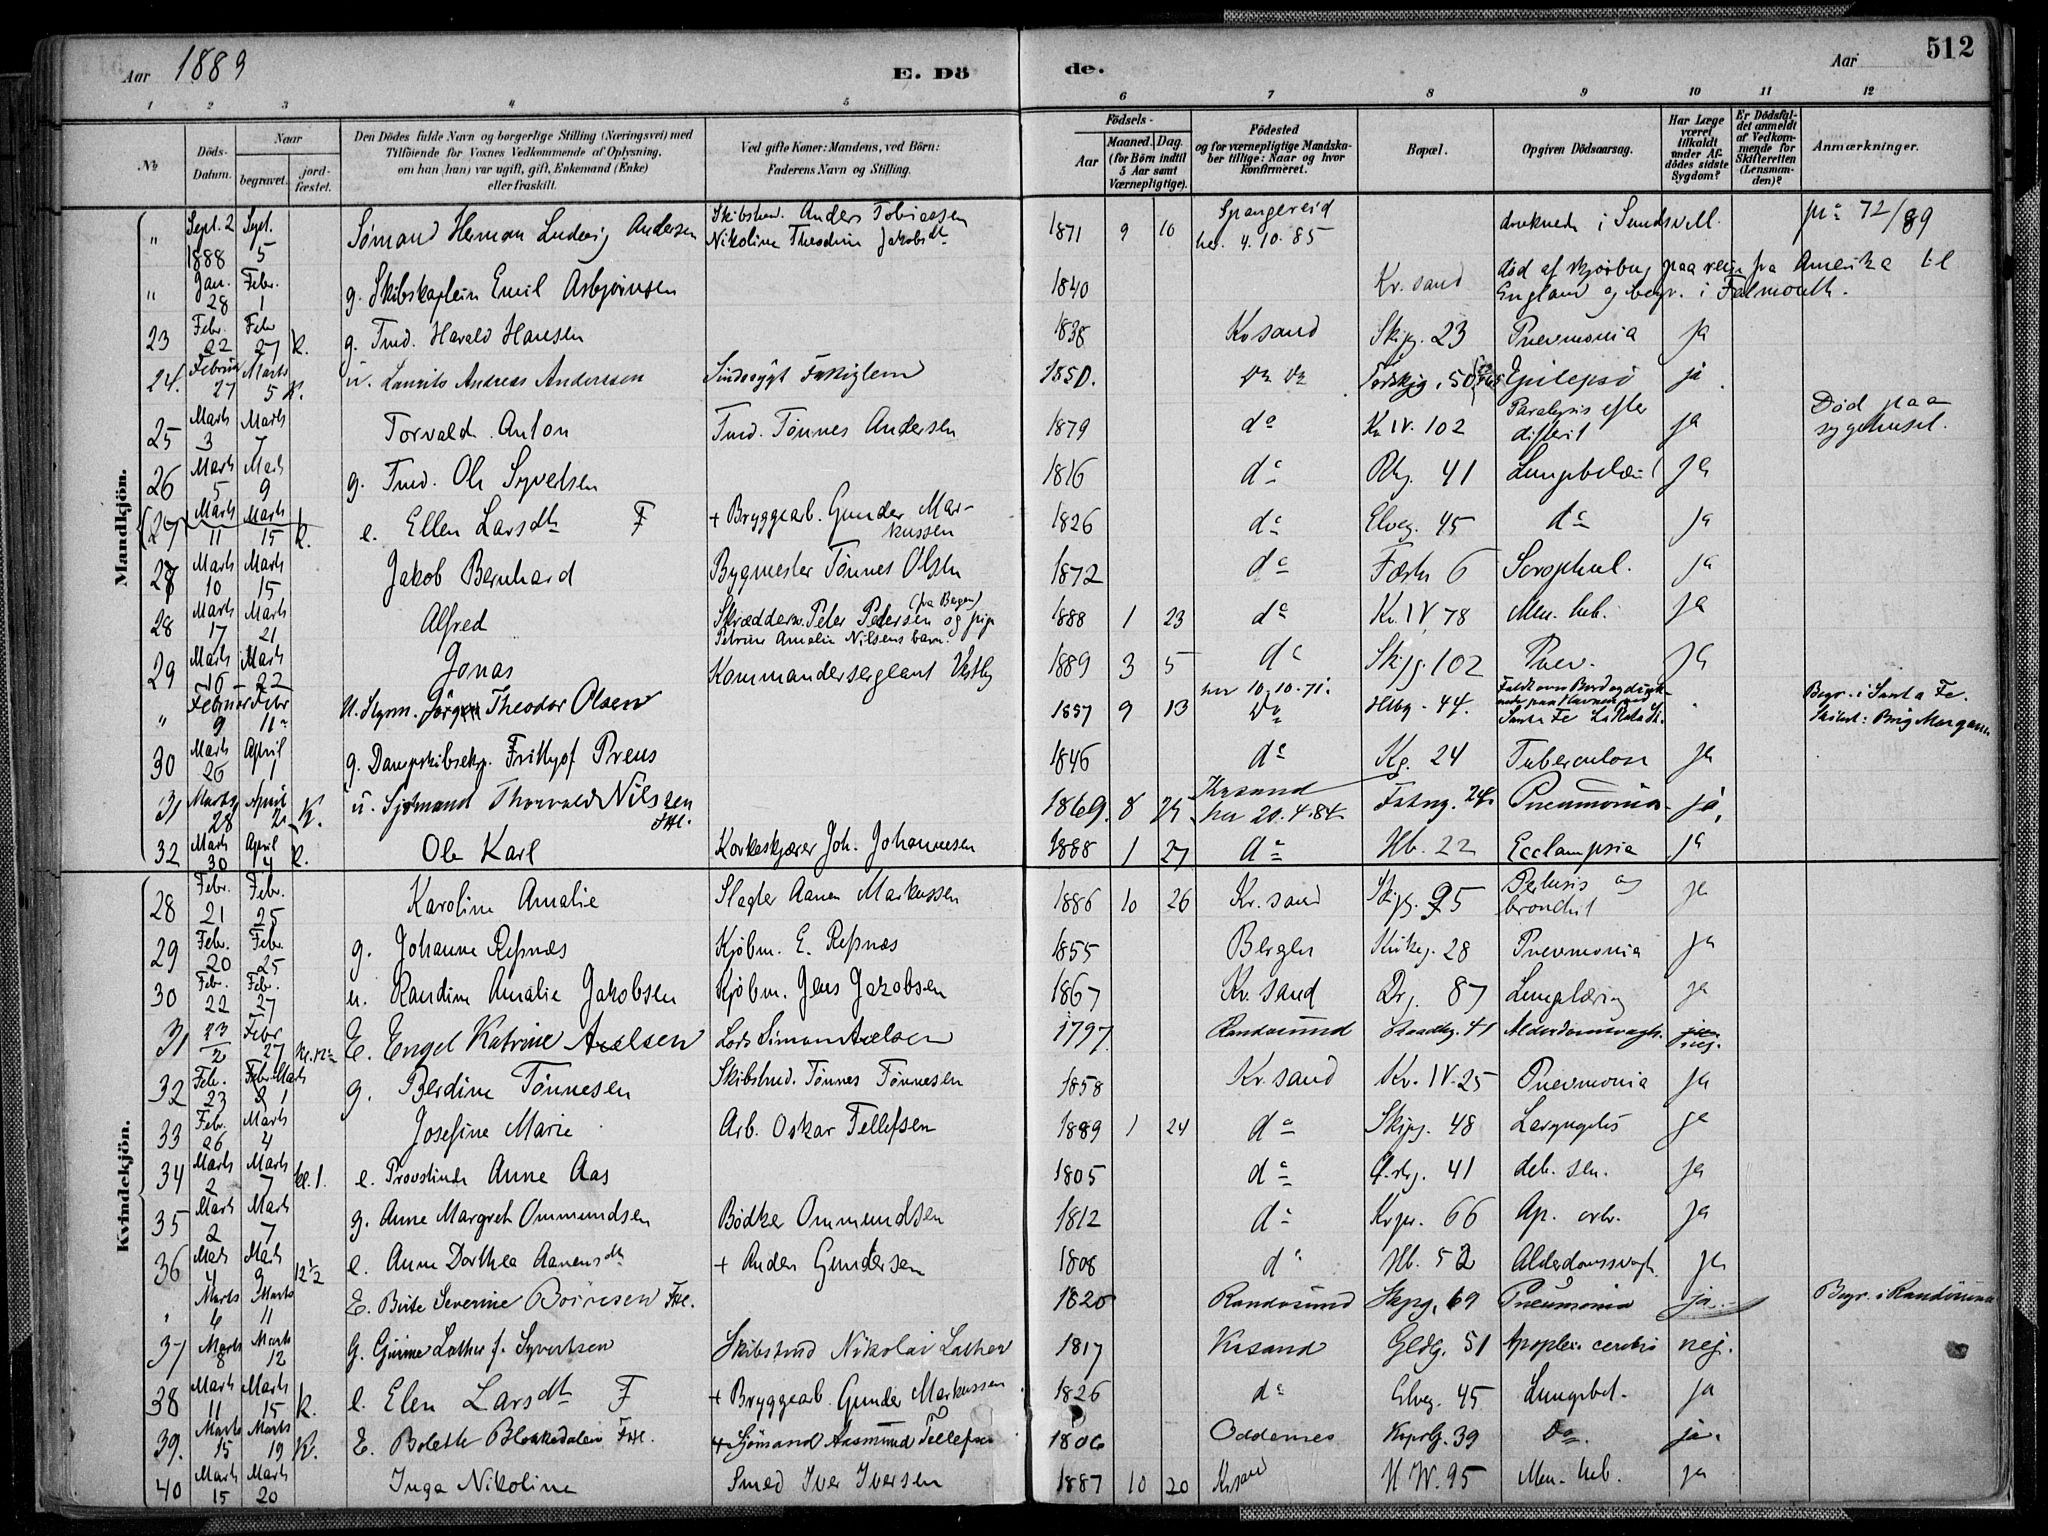 Aar 1889 E. Dö de. Aar 512
1 2 3 4 5 6 7 8 9 10 11 12
No
Döds-Datum.
Naar
begravet.
jord-fæstet.
Den Dödes fulde Navn og borgerlige Stilling (Næringsvei) med
Tilföiende for Voxnes Vedkommende af Oplysning,
om han (hun) var ugift, gift, Enkemand (Enke)
eller fraskilt.
Ved gifte Koner: Mandens, ved Börn:
Faderens Navn og Stilling.
Födsels-
Aar
Maaned. Dag.
(for Börn indtil
5 Aar samt
Værnepligtige).
Födested
og for værnepligtige Mandska-
ber tillige: Naar og hvor
konfirmeret.
Bopæl.
Opgiven Dödsaarsag.
Har Læge
været
tilkaldt
under Af-
dödes sidste
Sygdom?
Er Dödsfal-
det anmeldt
af Vedkom-
mende for
Skifteretten
(Lensman-
den)?
Anmærkninger.
Mandkjön.
" Sept. 2 1888 Sept. 5 Sömand Herman Ludvig Andersen Skibstmd. Anders Tobiassen Nikoline Theodine Jakobsdt 1871 9 10 Spangereid 4.10.85 druknede i Sundsvall. 72/89
" Jan. 28 Febr. 1 g. Skibskaptein Emil Asbjörnsen 1840 Kr.sand död af skjörbug paa reise fra Amerika til England og begr. i Falmouth.
23 Febr. 22 Febr 27 K. g. Tmd. Harald Hansen 1838 Krsand Skipg. 23 Pnevmonia ja
24. Februar 27 Marts 5 K. u. Laurits Andreas Andersen Sindssygt Fattiglem 1850. do do 50 Epilepsi ja
25 Marts 3 Marts 7 Torvald Anton Tmd. Tönnes Andersen 1879 do Kv. IV. 102 Paralysis efter difterit ja Död paa sygehuset.
26 Marts 5 Marts 9 g. Tmd. Ole Syvertsen 1816 do 41 ja
27 Marts 11 Marts 15 K. e. Ellen Larsdtr F + Bryggearb. Gunder Markussen 1826 do Elveg. 45 do ja
27 Marts 10 Marts 15 Jakob Bernhard Bygmester Tönnes Olsen 1872 do Fæstn 6 Scrophul. ja
28 Marts 17 Marts 21 Alfred Skrædder. Peter Pedersen (fra Bergen) og pige Petrine Amalie Nilsens barn. 1888 1 23 do Kv. IV 78 Men. tub. ja
29 Marts 16 Marts 22 Jonas Kommandersergeant Vestby 1889 3 5 do Skipg. 102 Pnev. ja
" Februar 9 Febr 11 U. Styrm. Jörgen Theodor Olsen 1857 9 13 10.10.71. do 44. Faldt over Bord og druknede paa Havnen ved Santa Fe La Plata Begr. i Santa Fe. Brig Morganen
30 Marts 26 April 1 g. Dampskibsexp. Frithjof Preus 1846 do Kg. 24 Tuberculose ja
31 Marts 28 April 2 K. u. Sjömand Thorvald Nilssen FHl. 1869. 8 25. Krsand 20.4.84. 24. Pneumonia ja.
32 Marts 30 April 4 K. Ole Karl Korkeskjærer Joh. Johannesen 1888 1 27 do 22 Ecclampsia ja
Kvindekjön.
28 Febr. 21 Febr. 25 Karoline Amalie Slagter Aanen Markussen 1886 10 26 Kr.sand Skipg. 95 Pertusis og bronchit ja
29 Febr. 20 Febr. 25 g. Johanne Refsnæs Kjöbm. E. Refsnæs 1855 Bergen 28 Pnevmonia ja
30 Febr. 22 Febr. 27 u. Randine Amalie Jakobsen Kjöbm. Jens Jakobsen 1867 Kr.sand Drg. 87 Lungetæring ja
31 23/2 Febr 27 E. Engel Katrine Axelsen Lods Simon Axelsen 1797. Randösund Strandg. 41 Alderdomssvagh. nej.
32 Febr. 23 Marts 1 g. Berdine Tönnesen Skibstmd. Tönnes Tönnesen 1858 Kr.sand Kv. IV. 25 Pnevmonia ja
33 Febr. 26 Marts 4 Josefine Marie Arb. Oskar Tellefsen 1889 1 24 do Skipg. 48 Laryngitis ja
34 Marts 2 Marts 7 kl. 1. e. Provstinde Anne Aas 1805 do 41 deb. sen. ja
35 Marts 2 Marts 7 g. Anne Margreth Ommundsen Bödker Ommundsen 1812 do 66 Ap. cerb. ja
36 Marts 4 Marts 9 12½ e. Anne Dorthea Aanensdtr + Anders Gundersen 1808 do 52 Alderdomssvagh. ja
" Marts 6 Marts 11 E. Birte Severine Börresen FHl. 1826 Randösund Skpg. 69 Pneumonia ja Begr. i Randösund
37 Marts 8 Marts 12 G. Gurine Lother f. Syvertsen Skibstmd Nikolai Lother 1817 Krsand Gldg. 51 Apoplex. cerebri nej.
38 Marts 11 Marts 15 K. e. Elen Larsdtr F + Bryggearb. Gunder Markussen 1826 do Elveg. 45 Lungebet. ja
39. Marts 15 Marts 19 K. E. Bolette Blekkedalen FHl. + Sjömand Aasmund Tellefsen 1806 Oddernes 39 Do ja.
40 Marts 15 Marts 20 Inga Nikoline Smed Iver Iversen 1887 10 20 Krsand 95 Men. tub. ja